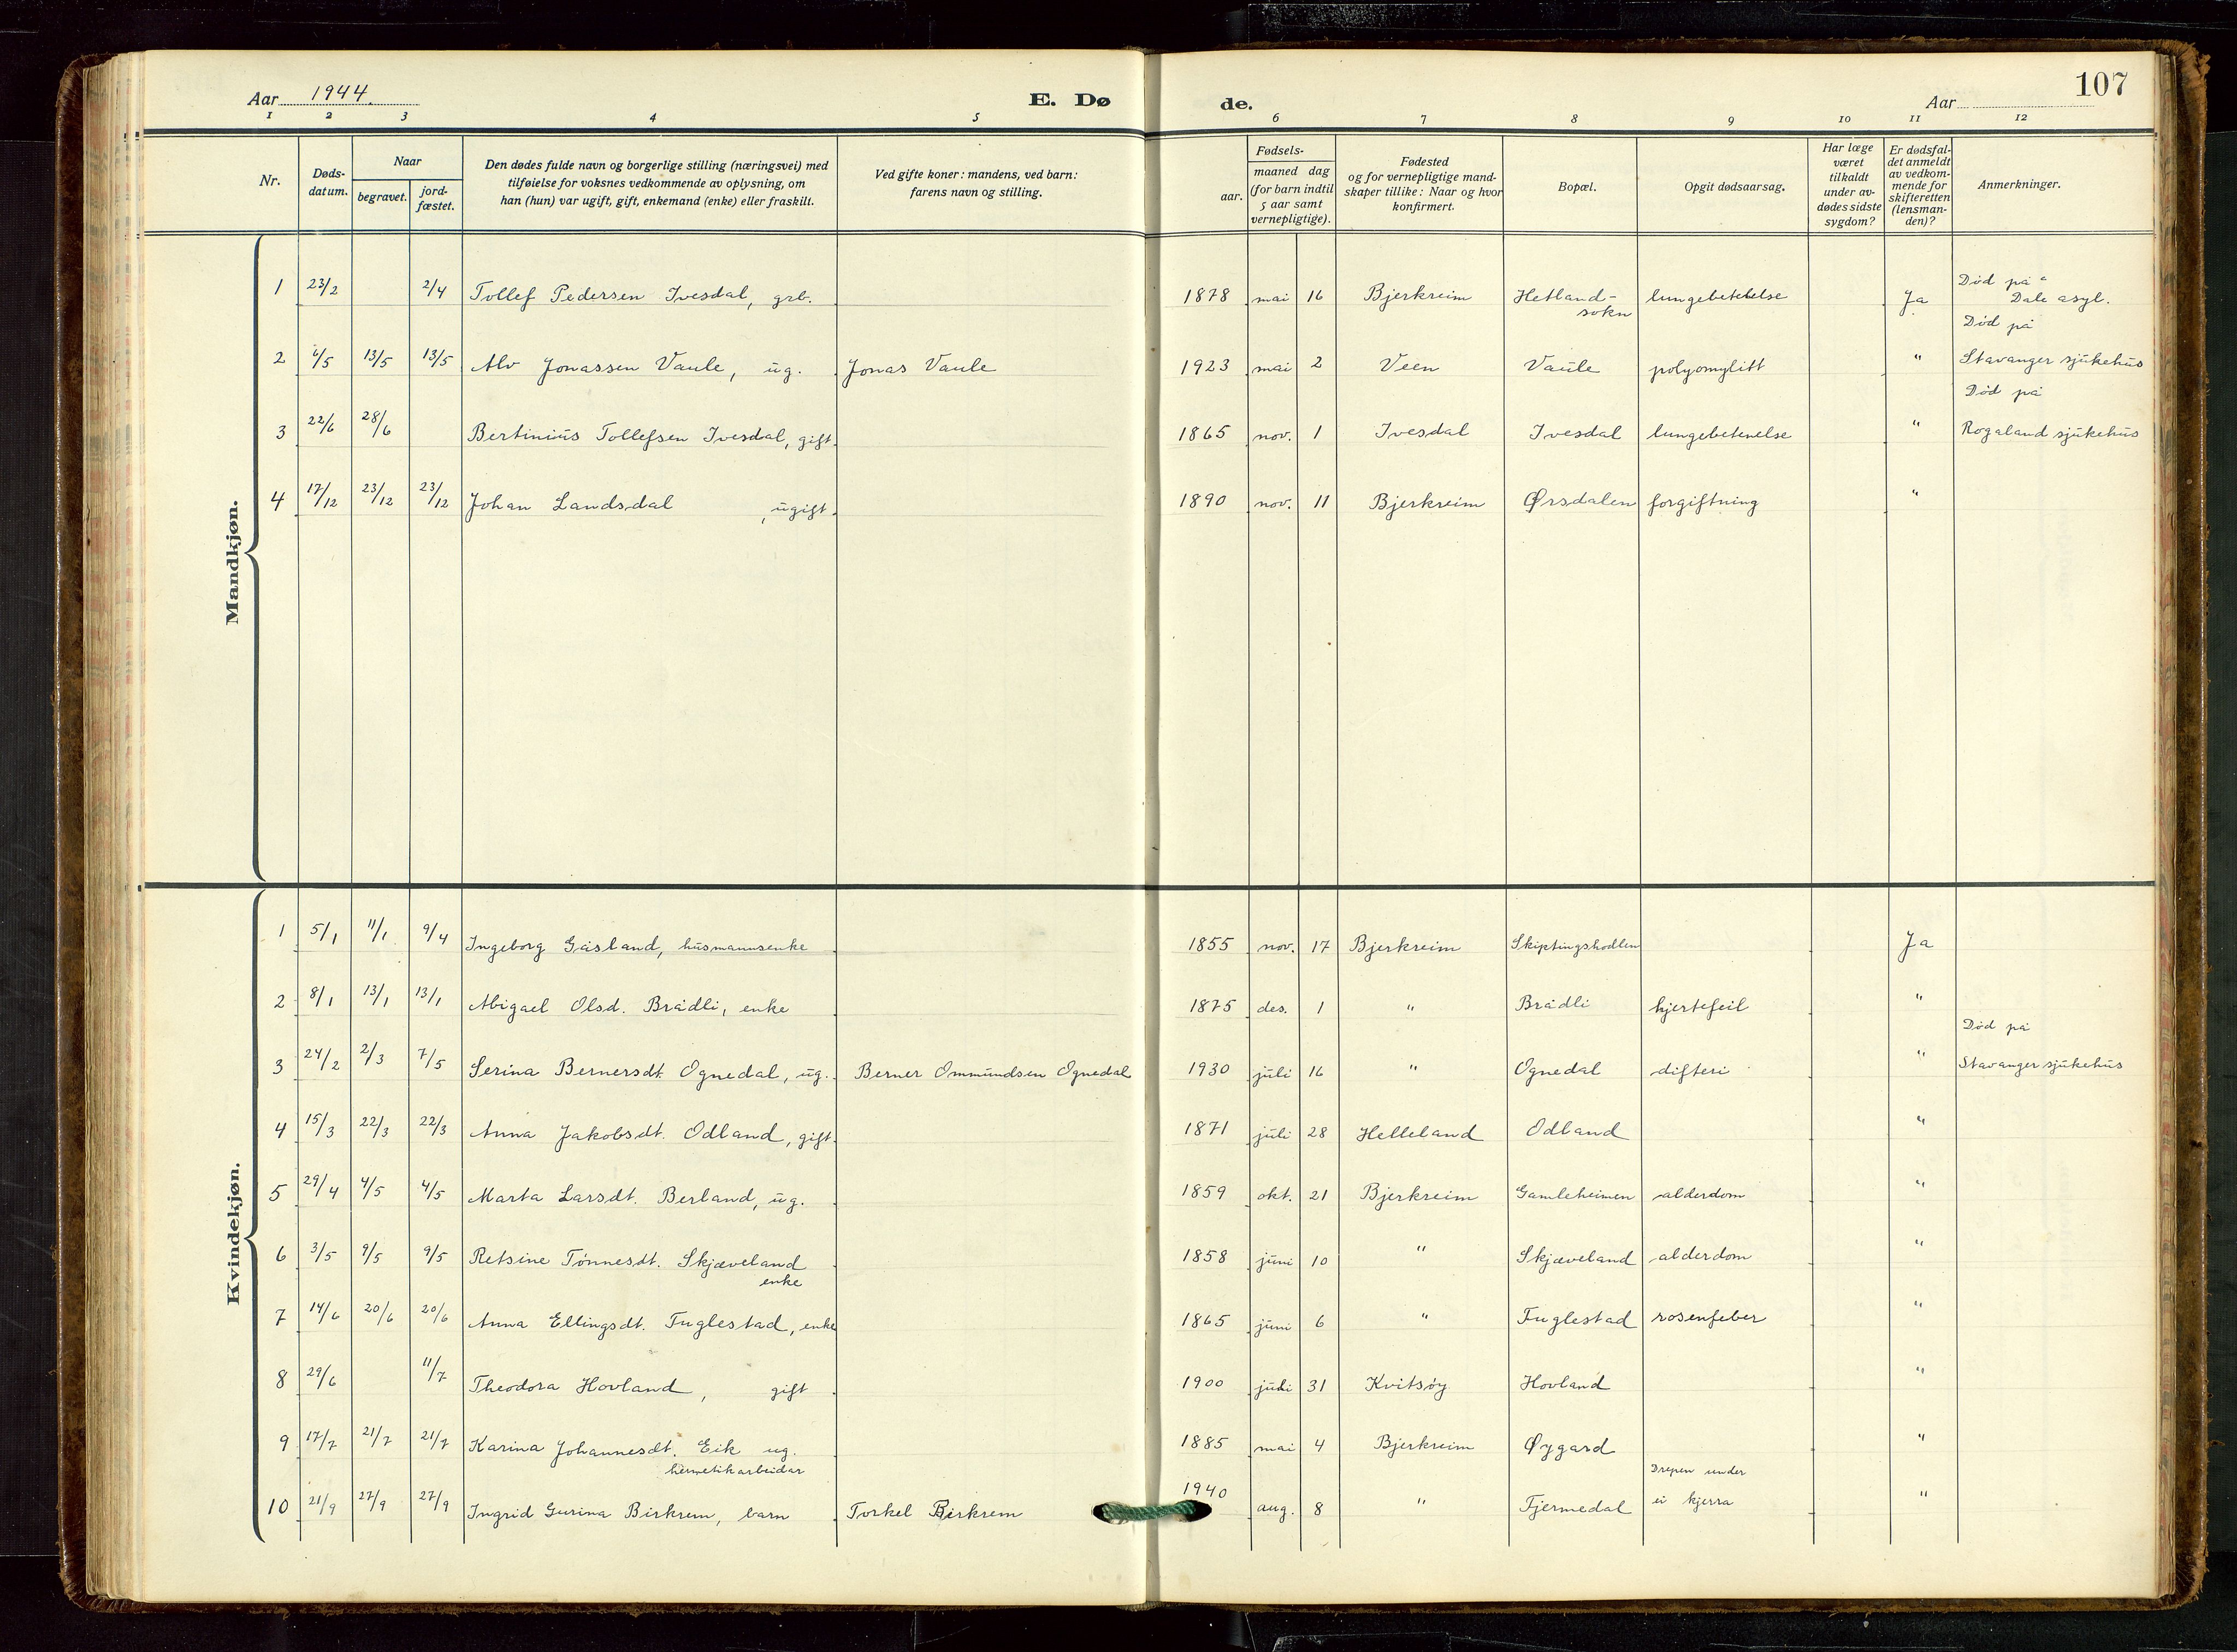 107
Aar 1944. E. Dø de. Aar
1 2 3 4 5 6 7 8 9 10 11 12
Nr.
Døds-
datum.
Naar
begravet.
jord-
fæstet.
Den dødes fulde navn og borgerlige stilling (næringsvei) med
tilføielse for voksnes vedkommende av oplysning, om
han (hun) var ugift, gift, enkemand (enke) eller fraskilt.
Ved gifte koner: mandens, ved barn:
farens navn og stilling.
Fødsels-
aar.
maaned dag
(for barn indtil
5 aar samt
vernepligtige).
Fødested
og for vernepligtige mand-
skaper tillike: Naar og hvor
konfirmert.
Bopæl.
Opgit dødsaarsag.
Har læge
været
tilkaldt
under av-
dødes sidste
sygdom?
Er dødsfal-
det anmeldt
av vedkom-
mende for
skifteretten
(lensman-
den)?
Anmerkninger.
Mandkjøn.
1 23/2 2/4 Tollef Pedersen Ivesdal, grb. 1878 mai 16 Bjerkreim Hetland-
sokn lungebetelelse Ja Død på
Dale asyl.
2 6/5 13/5 13/5 Alv Jonassen Vaule, ug. Jonas Vaule 1923 mai 2 Veen Vaule polyomylitt " Død på
Stavanger sjukehus
3 22/6 28/6 Bertinius Tollefsen Ivesdal, gift. 1865 nov. 1 Ivesdal Ivesdal lungebetenelse " Død på
Rogaland sjukehus
4 17/12 23/12 23/12 Johan Landsdal, ugift. 1890 nov. 11 Bjerkreim Ørsdalen forgiftning "
Kvindekjøn.
1 5/1 11/1 9/4 Ingeborg Gåsland, husmannsenke 1855 nov. 17 Bjerkreim Skiptingshodlen Ja
2 8/1 13/1 13/1 Abigael Olsd. Brådli, enke 1875 des. 1 " Brådli hjertefeil "
3 24/2 2/3 7/5 Serina Bernersdt. Ognedal, ug. Berner Ommundsen Ognedal 1930 juli 16 " Ognedal difteri " Død på
Stavanger sjukehus
4 15/3 22/3 22/3 Anna Jakobsdt. Odland, gift. 1871 juli 28 Helleland Odland "
5 29/4 4/5 4/5 Marta Larsdt. Berland, ug. 1859 okt. 21 Bjerkreim Gamleheimen alderdom "
6 3/5 9/5 9/5 Retsine Tønnesdt. Skjæveland
enke 1858 juni 10 " Skjæveland alderdom "
7 14/6 20/6 20/6 Anna Ellingsdt. Fuglestad, enke 1865 juni 6 " Fuglestad rosenfeber "
8 29/6 11/7 Theodora Hovland, gift 1900 juli 31 Kvitsøy Hovland "
9 17/7 21/7 21/7 Karina Johannesdt. Eik ug.
hermetikarbeidar 1885 mai 4 Bjerkreim Øygard "
10 21/9 27/9 27/9 Ingrid Gurina Birkrem, barn Torkel Birkrem 1940 aug. 8 " Tjermedal Drepen under
ei kjerra "